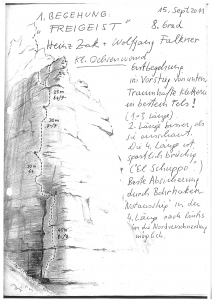 1. BEGEHUNG: 15. Sept 2011
"FREIGEIST" 8. Grad
Heinz Zak + Wolfgang Falkner
Kl. Ochsenwand
Erstbegehung
im Vorstieg von unten,
Traumhafte Kletterei
in bestem Fels!
(1-3 Länge)
2. Länge besser, als
sie ausschaut.
Die 4. Länge ist
sportlich brüchig
("El Schuppo")
Beste Absicherung
durch Bohrhaken
Notausstieg in der
4. Länge nach links
in die Nordverschneidung
möglich.